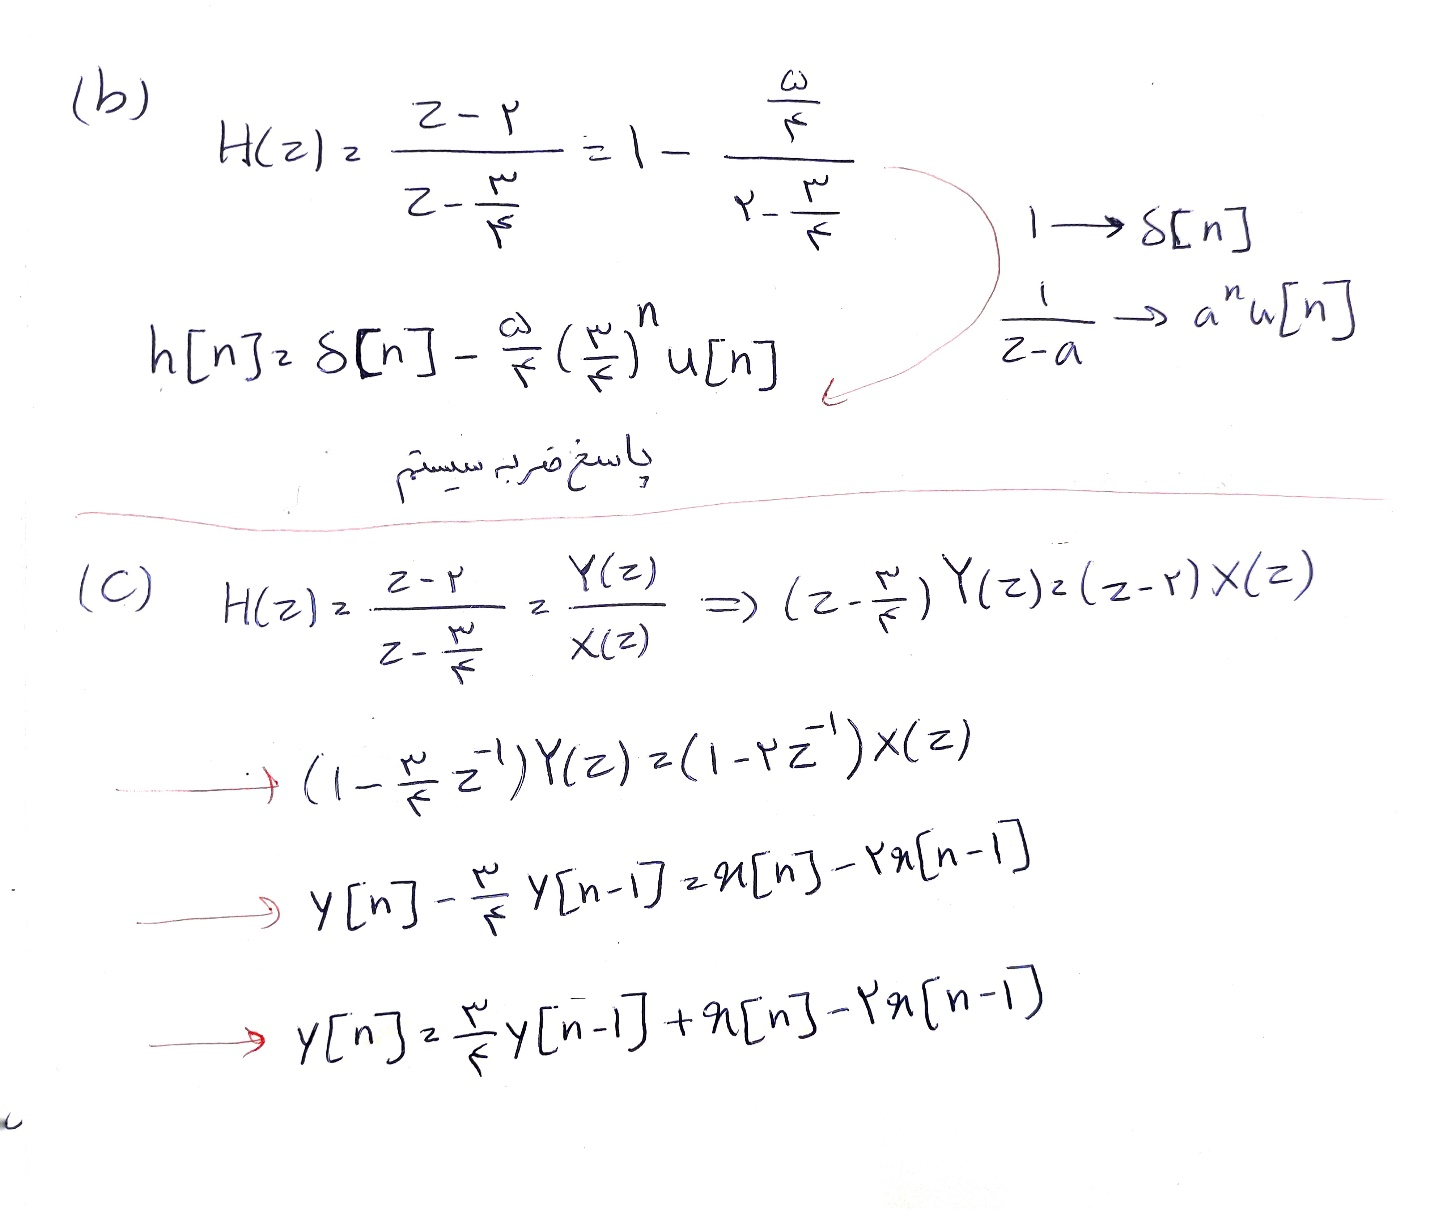 (b)
H(z) = (z-۲)/(z-۳/۴) = 1 - (۵/۴)/(۲-۳/۴)
1 → δ[n]
1/(z-a) → aⁿu[n]
h[n] = δ[n] - ۵/۴ (۳/۴)ⁿ u[n]
پاسخ ضربه سیستم
(C) H(z) = (z-۲)/(z-۳/۴) = Y(z)/X(z) ⇒ (z-۳/۴) Y(z) = (z-۲) X(z)
→ (1-۳/۴ z⁻¹) Y(z) = (1-۲z⁻¹) X(z)
→ y[n] - ۳/۴ y[n-1] = x[n] - ۲x[n-1]
→ y[n] = ۳/۴ y[n-1] + x[n] - ۲x[n-1]